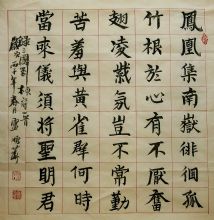 鳳凰集南嶽徘徊孤
竹根於心有不厭奮
翅凌紫氛豈不常勤
苦羞與黃雀群何時
當來儀須將聖明君